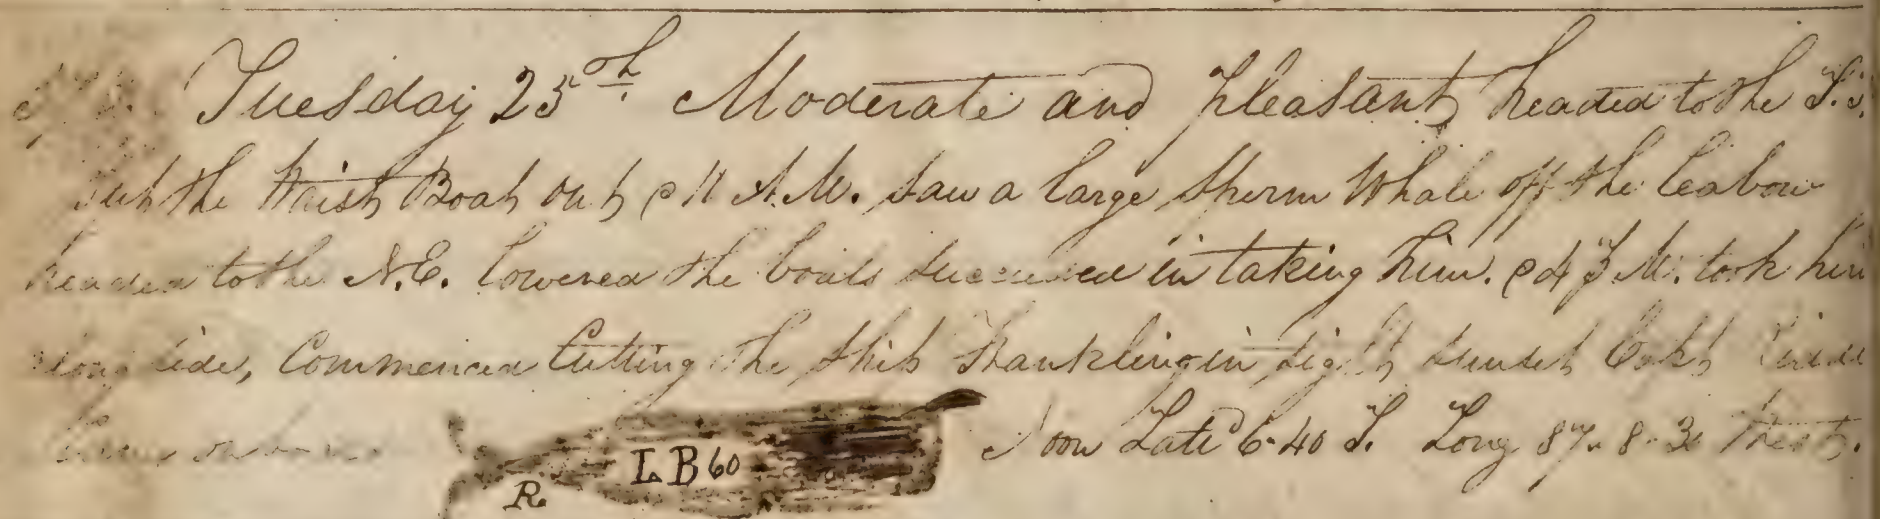 Tuesday 25th Moderate and pleasant headed to the S.
Put the Waist Boat out @ 11 A.M. saw a large Sperm Whale off the lea bow
headed to the N.E. lowered the boats succeeded in taking him. @ 4 P.M. took him
along side, Commenced Cutting the Ship Franklin in sight sunset Capt
came on board
LB 60
R.
Noon Latd 6-40 S. Long 87-8-30 West.